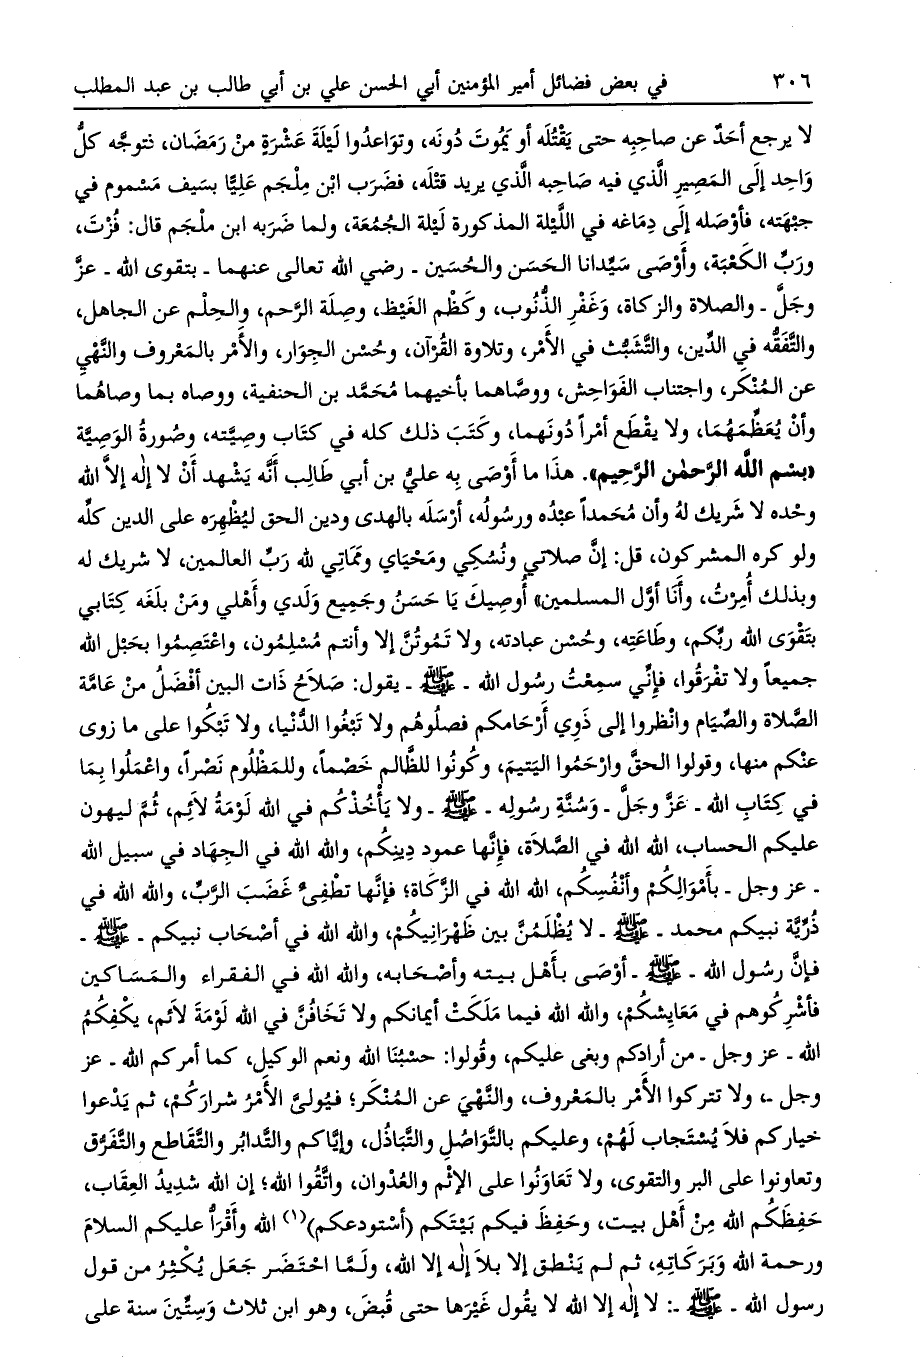 ٣٠٦ في بعض فضائل أمير المؤمنين أبي الحسن علي بن أبي طالب بن عبد المطلب
لا يرجع أحَدٌ عن صاحِبِه حتى يَقْتُلَه أو يَمُوتَ دُونَه، وتوَاعدُوا لَيْلَةَ عَشْرَةٍ منْ رَمَضَان، نتوجَّه كلُّ
وَاحِد إلَى المَصِيرِ الَّذي فيه صَاحِبه الَّذي يريد قتْلَه، فضَرَب ابْن مِلْجَم عَلِيًّا بسَيف مَسْموم في
جبْهَته، فأوْصَله إلَى دِمَاغه في اللَّيْلة المذكورة لَيْلة الجُمُعَة، ولما ضَرَبه ابن ملْجم قال: فُزْتَ،
ورَبِّ الكَعْبَة، وأَوْصَى سَيِّدانا الحَسَن والحُسَين ـ رضي الله تعالى عنهما ـ بتقوى الله ـ عزَّ
وجَلَّ ـ والصلاة والزكاة، وَغَفْرِ الذُّنُوب، وكَظْم الغَيْظ، وصِلَة الرَّحم، والحِلْم عن الجاهل،
والتَّفَقُّه في الدِّين، والتَّشَبُّث في الأَمْر، وتلاوة القُرْآن، وحُسْن الجِوَار، والأَمْر بالمَعْروف والنَّهْيِ
عن المُنْكَر، واجتناب الفَوَاحِش، ووصَّاهما بأخيهما مُحَمَّد بن الحنفية، ووصاه بما وصاهُما
وأنْ يُعَظِّمَهُمَا، ولا يقْطَع أمْراً دُونَهما، وكَتَبَ ذلك كله في كتَاب وصِيَّته، وصُورةُ الوَصِيَّة
«بِسْم اللَّه الرَّحمٰن الرَّحِيم». هذَا ما أَوْصَى بِه عليُّ بن أبي طَالِب أنَّه يَشْهد أنْ لا إلٰه إلاَّ الله
وحْده لا شَريك لهُ وأن مُحَمداً عبْدُه ورسُولُه، أرْسَلَه بالهدى ودين الحق ليُظْهِرَه على الدين كلِّه
ولو كره المشركون، قل: إنَّ صلاتي ونُسُكِي ومَحْيَاي ومَمَاتِي لله رَبِّ العالمين، لا شريك له
وبذلك أُمِرْتُ، وأنَا أوَّل المسلمين» أُوصِيكَ يَا حَسَنُ وجَمِيع وَلَدي وأهْلي ومَنْ بلَغَه كِتَابي
بتَقْوَى الله ربِّكم، وطَاعَتِه، وحُسْن عبادته، ولا تَمُوتُنَّ إلا وأنتم مُسْلِمُون، واعْتَصِمُوا بحَبْل الله
جميعاً ولا تفْرَقُوا، فإنِّي سمِعْتُ رسُول الله ـ ﷺ ـ يقول: صَلاَحُ ذَات البين أفْضَلُ منْ عَامَّة
الصَّلاة والصِّيَام وانْظروا إلى ذَوِي أَرْحَامكم فصلُوهُم ولا تَبْغُوا الدُّنْيا، ولا تَبْكُوا على ما زوى
عنْكم منها، وقولوا الحقَّ وارْحَمُوا اليَتيمَ، وكُونُوا للظَّالم خَصْماً، وللمَظْلُوم نَصْراً، واعْمَلُوا بِمَا
في كِتَابِ الله ـ عَزَّ وجَلَّ ـ وَسُنَّةِ رسُولِه ـ ﷺ ـ ولا يَأْخُذْكُم في الله لَوْمَةُ لاَئِم، ثُمَّ ليهون
عليكم الحساب، الله الله في الصَّلاَة، فإنَّها عمود دِينِكُم، والله الله في الجِهَاد في سبيل الله
ـ عز وجل ـ بأَمْوَالِكُمْ وأنْفُسِكُم، الله الله في الزَّكَاة؛ فإنَّها تطْفِىءُ غَضَبَ الرَّبِّ، والله الله في
ذُرِّيَّة نبيكم محمد ـ ﷺ ـ لا يُظْلَمُنَّ بين ظَهْرَانِيكُمْ، والله الله في أصْحَاب نبيكم ـ ﷺ ـ
فإنَّ رسُول الله ـ ﷺ ـ أوْصَى بأَهْل بيته وأصْحَابه، والله الله في الفقراء والمَسَاكين
فأشْرِكُوهم في مَعَايِشكُمْ، والله الله فيما مَلَكَتْ أيمانكم ولا تَخَافُنَّ في الله لَوْمَةَ لاَئم، يكْفِكُمُ
الله ـ عز وجل ـ من أرادكم وبغى عليكم، وقُولوا: حسْبُنَا الله ونعم الوكيل، كما أمركم الله ـ عز
وجل ـ، ولا تتركوا الأَمْر بالمَعْروف، والنَّهْيَ عن المُنْكَر؛ فيُولىَّ الأَمْرُ شرارَكُمْ، ثم يَدْعوا
خياركم فلاَ يُسْتجاب لَهُمْ، وعليكم بالتَّوَاصُلِ والتَّبَاذُل، وإيَّاكم والتَّدابُر والتَّقَاطع والتَّفَرُّق
وتعاونوا على البر والتقوى، ولا تَعَاوَنُوا على الإثْم والعُدْوان، واتَّقُوا الله؛ إن الله شَدِيدُ العِقَاب،
حَفِظَكُم الله مِنْ أَهْل بيت، وحَفِظَ فيكم بَيْتَكم (أستودعكم)(١) الله وأَقْرَأُ عليكم السلامَ
ورحمة الله وَبَرَكَاتِهِ، ثم لم يَنْطق إلا بلاَ إلٰه إلا الله، ولَمَّا احْتَضَر جَعَل يُكْثِرُ من قول
رسول الله ـ ﷺ ـ: لا إلٰه إلا الله لا يقُول غَيْرَها حتى قُبضَ، وهو ابن ثلاث وَسِتِّينَ سنة على